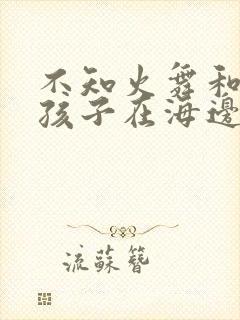 不知火舞和
孩子在海邊
流蘇簪